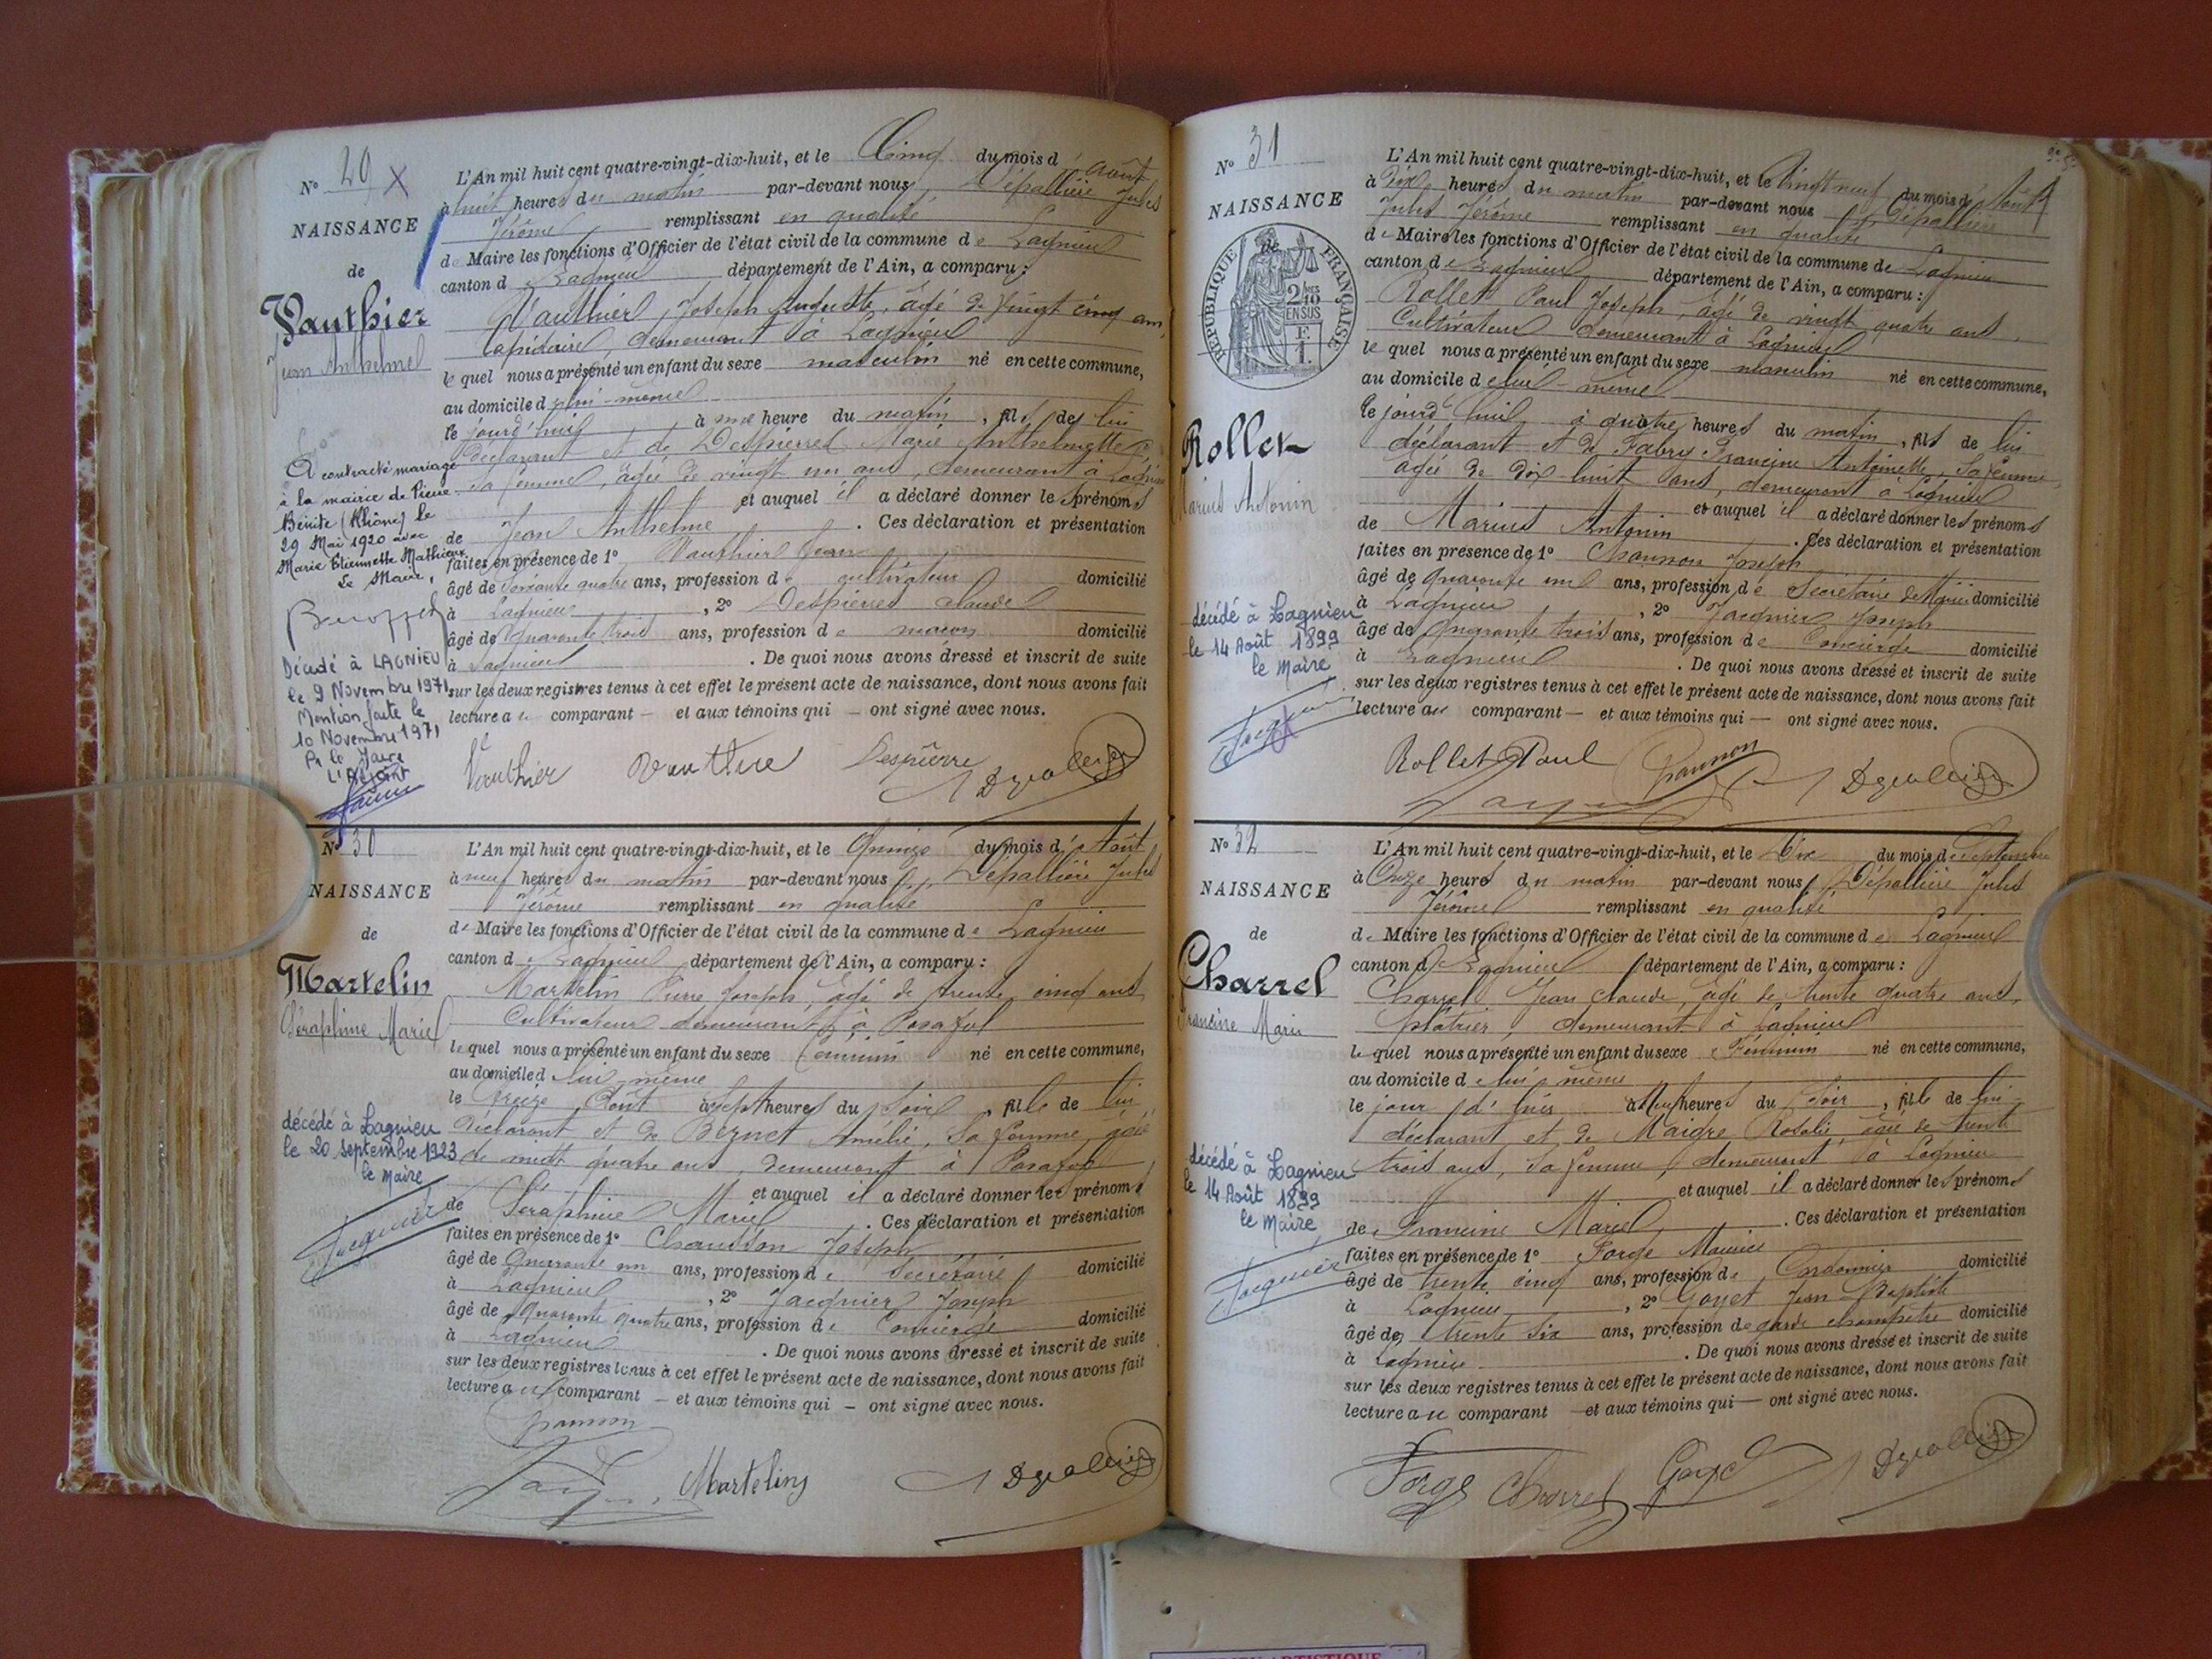 N° 29 X
NAISSANCE
de
Vauthier
Jean Anthelme
L'An mil huit cent quatre-vingt-dix-huit, et le Cinq du mois d'août
à huit heures du matin par-devant nous, Dépallière Jules
Jérôme remplissant en qualité
de Maire les fonctions d'Officier de l'état civil de la commune de Lagnieu
canton de Lagnieu département de l'Ain, a comparu:
Vauthier Joseph Auguste, âgé de vingt cinq ans,
lapidaire, demeurant à Lagnieu
le quel nous a présenté un enfant du sexe masculin né en cette commune,
au domicile de lui-même
le jourd'hui à une heure du matin, fils de lui
déclarant et de Despierres Marie Anthelmette
sa femme, âgée de vingt un ans, demeurant à Lagnieu
et auquel il a déclaré donner les prénoms
de Jean Anthelme. Ces déclaration et présentation
faites en présence de 1° Vauthier Jean
âgé de soixante quatre ans, profession de cultivateur domicilié
à Lagnieu, 2° Despierres Claude
âgé de quarante trois ans, profession de maçon domicilié
à Lagnieu. De quoi nous avons dressé et inscrit de suite
sur les deux registres tenus à cet effet le présent acte de naissance, dont nous avons fait
lecture au comparant — et aux témoins qui — ont signé avec nous.
Vauthier Vauthier Despierre
A contracté mariage
à la mairie de Pierre
Bénite (Rhône) le
29 Mai 1920 avec
Marie Etiennette Mathieux
Le Maire,
Décédé à LAGNIEU
le 9 Novembre 1971
Mention faite le
10 Novembre 1971
Pr le Maire
L'Adjoint
N° 30
NAISSANCE
de
Martelin
Séraphine Marie
L'An mil huit cent quatre-vingt-dix-huit, et le Quinze du mois d'Août
à neuf heures du matin par-devant nous, Dépallière Jules
Jérôme remplissant en qualité
de Maire les fonctions d'Officier de l'état civil de la commune de Lagnieu
canton de Lagnieu département de l'Ain, a comparu:
Martelin Pierre Joseph, âgé de trente cinq ans
Cultivateur demeurant à Posafol
le quel nous a présenté un enfant du sexe féminin né en cette commune,
au domicile de lui-même
le treize Août à sept heures du soir, fille de lui
déclarant et de Amélie, sa femme, âgée
de vingt quatre ans, demeurant à Posafol
et auquel il a déclaré donner les prénoms
de Séraphine Marie. Ces déclaration et présentation
faites en présence de 1° Chaunon Joseph
âgé de Quarante un ans, profession de Secrétaire domicilié
à Lagnieu, 2° Jacquier Joseph
âgé de quarante quatre ans, profession de Concierge domicilié
à Lagnieu. De quoi nous avons dressé et inscrit de suite
sur les deux registres tenus à cet effet le présent acte de naissance, dont nous avons fait
lecture au comparant — et aux témoins qui — ont signé avec nous.
Martelin
décédé à Lagnieu
le 20 septembre 1923
le Maire
Jacquier
N° 31
NAISSANCE
de
RÉPUBLIQUE FRANÇAISE
2/10
EN SUS
F.
1.
Rollet
Marius Antonin
L'An mil huit cent quatre-vingt-dix-huit, et le Vingt neuf du mois d'Août
à dix heures du matin par-devant nous Dépallière
Jules Jérôme remplissant en qualité
de Maire les fonctions d'Officier de l'état civil de la commune de Lagnieu
canton de Lagnieu département de l'Ain, a comparu:
Rollet Paul Joseph, âgé de vingt quatre ans,
Cultivateur demeurant à Lagnieu
le quel nous a présenté un enfant du sexe masculin né en cette commune,
au domicile de lui-même
le jourd'hui à quatre heures du matin, fils de lui
déclarant et de Fabry Francine Antoinette, sa femme,
âgée de dix-huit ans, demeurant à Lagnieu
et auquel il a déclaré donner les prénoms
de Marius Antonin. Ces déclaration et présentation
faites en présence de 1° Chaunon Joseph
âgé de quarante un ans, profession de Secrétaire de Mairie domicilié
à Lagnieu, 2° Jacquier Joseph
âgé de Quarante trois ans, profession de Concierge domicilié
à Lagnieu. De quoi nous avons dressé et inscrit de suite
sur les deux registres tenus à cet effet le présent acte de naissance, dont nous avons fait
lecture au comparant — et aux témoins qui — ont signé avec nous.
Rollet Paul
décédé à Lagnieu
le 14 Août 1899
le Maire
N° 32
NAISSANCE
de
Charrel
Francine Marie
L'An mil huit cent quatre-vingt-dix-huit, et le Dix du mois de Septembre
à Onze heures du matin par-devant nous, Dépallière Jules
Jérôme remplissant en qualité
de Maire les fonctions d'Officier de l'état civil de la commune de Lagnieu
canton de Lagnieu département de l'Ain, a comparu:
Charrel Jean Claude, âgé de trente quatre ans,
plâtrier, demeurant à Lagnieu
le quel nous a présenté un enfant du sexe Féminin né en cette commune,
au domicile de lui même
le jour d'hier à heures du soir, fille de lui
déclarant et de Maigre Rosalie âgée de trente
trois ans, sa femme, demeurant à Lagnieu
et auquel il a déclaré donner les prénoms
de Francine Marie. Ces déclaration et présentation
faites en présence de 1° Forge Maurice
âgé de trente cinq ans, profession de Cordonnier domicilié
à Lagnieu, 2° Goyet Jean Baptiste
âgé de trente six ans, profession de garde champêtre domicilié
à Lagnieu. De quoi nous avons dressé et inscrit de suite
sur les deux registres tenus à cet effet le présent acte de naissance, dont nous avons fait
lecture au comparant — et aux témoins qui — ont signé avec nous.
Forge Charrel Goyet
décédé à Lagnieu
le 14 Août 1899
le Maire
Jacquier